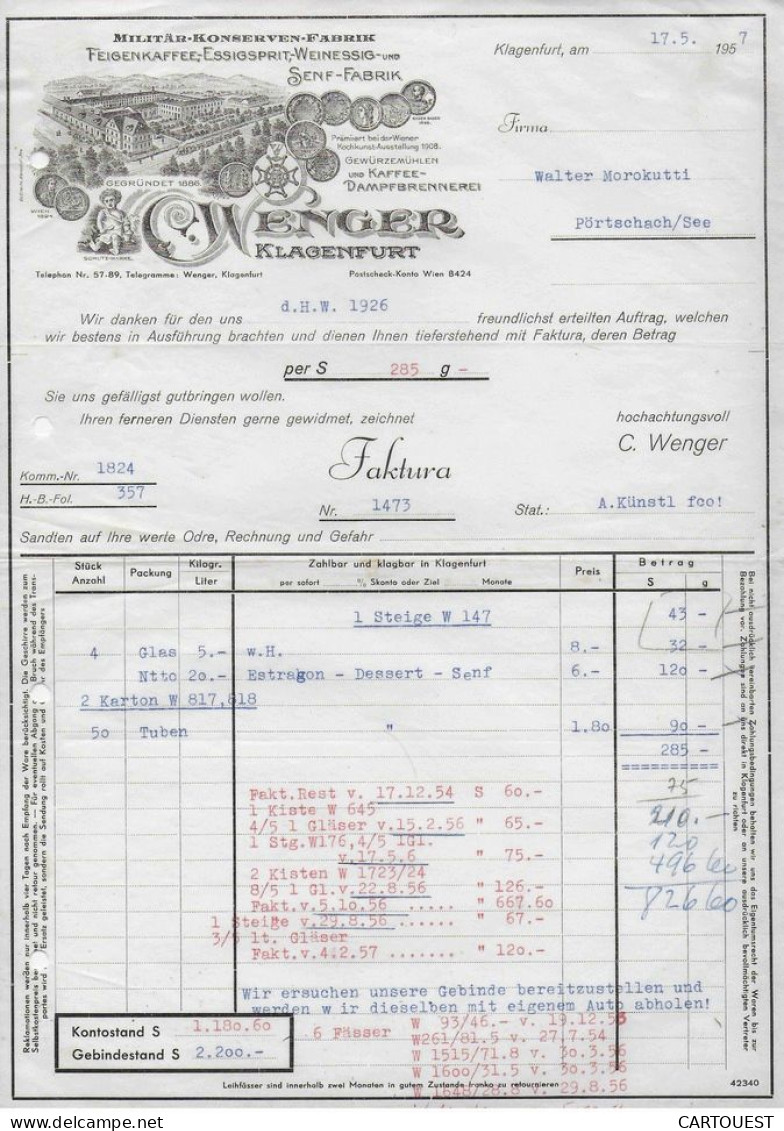 MILITÄR-KONSERVEN-FABRIK
FEIGENKAFFEE,-ESSIGSPRIT,-WEINESSIG-UND
SENF-FABRIK
Prämiiert bei der Wiener
Kochkunst-Ausstellung 1908.
GEWÜRZEMÜHLEN
UND KAFFEE-
DAMPFBRENNEREI
GEGRÜNDET 1886.
WIEN
1894.
SCHUTZ-MARKE.
C. WENGER
KLAGENFURT
Telephon Nr. 57-89, Telegramme: Wenger, Klagenfurt Postscheck-Konto Wien 8424
Klagenfurt, am 17.5. 1957
Firma
Walter Morokutti
Pörtschach/See
Wir danken für den uns d.H.W. 1926 freundlichst erteilten Auftrag, welchen
wir bestens in Ausführung brachten und dienen Ihnen tieferstehend mit Faktura, deren Betrag
per S 285 g -
Sie uns gefälligst gutbringen wollen.
Ihren ferneren Diensten gerne gewidmet, zeichnet hochachtungsvoll
C. Wenger
Faktura
Komm.-Nr. 1824
H.-B.-Fol. 357
Nr. 1473 Stat.: A.Künstl fco!
Sandten auf Ihre werte Odre, Rechnung und Gefahr
Stück Anzahl Packung Kilogr. Liter Zahlbar und klagbar in Klagenfurt Preis Betrag
per sofort % Skonto oder Ziel Monate S g
1 Steige W 147 43 -
4 Glas 5.- w.H. 8.- 32 -
Ntto 20.- Estragon - Dessert - Senf 6.- 120 -
2 Karton W 817,818
50 Tuben " 1.80 90 -
285 -
==========
Fakt.Rest v. 17.12.54 S 60.- 75
1 Kiste W 645 210.-
4/5 l Gläser v.15.2.56 " 65.- 120
1 Stg.W176,4/5 lGl.
v.17.5.6 " 75.- 496 60
2 Kisten W 1723/24
8/5 l Gl.v.22.8.56 " 126.- 826 60
Fakt.v.5.10.56 ..... " 667.60
1 Steige v.29.8.56 ..... " 67.-
3/5 lt. Gläser
Fakt.v.4.2.57 ....... " 120.-
Wir ersuchen unsere Gebinde bereitzustellen und
werden w ir dieselben mit eigenem Auto abholen!
Kontostand S 1.180.60
Gebindestand S 2.200.-
6 Fässer W 93/46.- v. 19.12.53
W261/81.5 v. 27.7.54
W 1515/71.8 v. 30.3.56
W 1600/31.5 v. 30.3.56
W 1648/28.8 v. 29.8.56
Leihfässer sind innerhalb zwei Monaten in gutem Zustande franko zu retournieren 42340
Reklamationen werden nur innerhalb vier Tagen nach Empfang der Ware berücksichtigt. Die Geschirre werden zum
Selbstkostenpreis und nicht retour genommen. — Für eventuellen Abgang Bruch während des Trans-
portes wird Ersatz geleistet, sondern die Sendung rollt auf Kosten und des Empfängers
Bei nicht ausdrücklich vereinbarten Zahlungsbedingungen behalten wir uns das Eigentumsrecht der Waren bis zur
Bezahlung vor. Zahlungen sind an uns direkt in Klagenfurt oder an unsere ausdrücklich bevollmächtigten Vertreter
zu richten
CARTOUEST